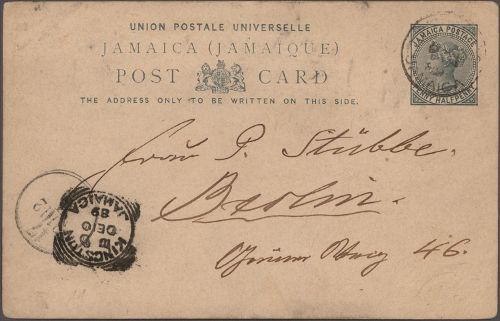 UNION POSTALE UNIVERSELLE
JAMAICA (JAMAÏQUE)
POST CARD
THE ADDRESS ONLY TO BE WRITTEN ON THIS SIDE.
JAMAICA POSTAGE
HALFPENNY
Frau P. Stübbe.
Berlin.
Grüner Weg 46.
KINGSTON
DE
89
JAMAICA